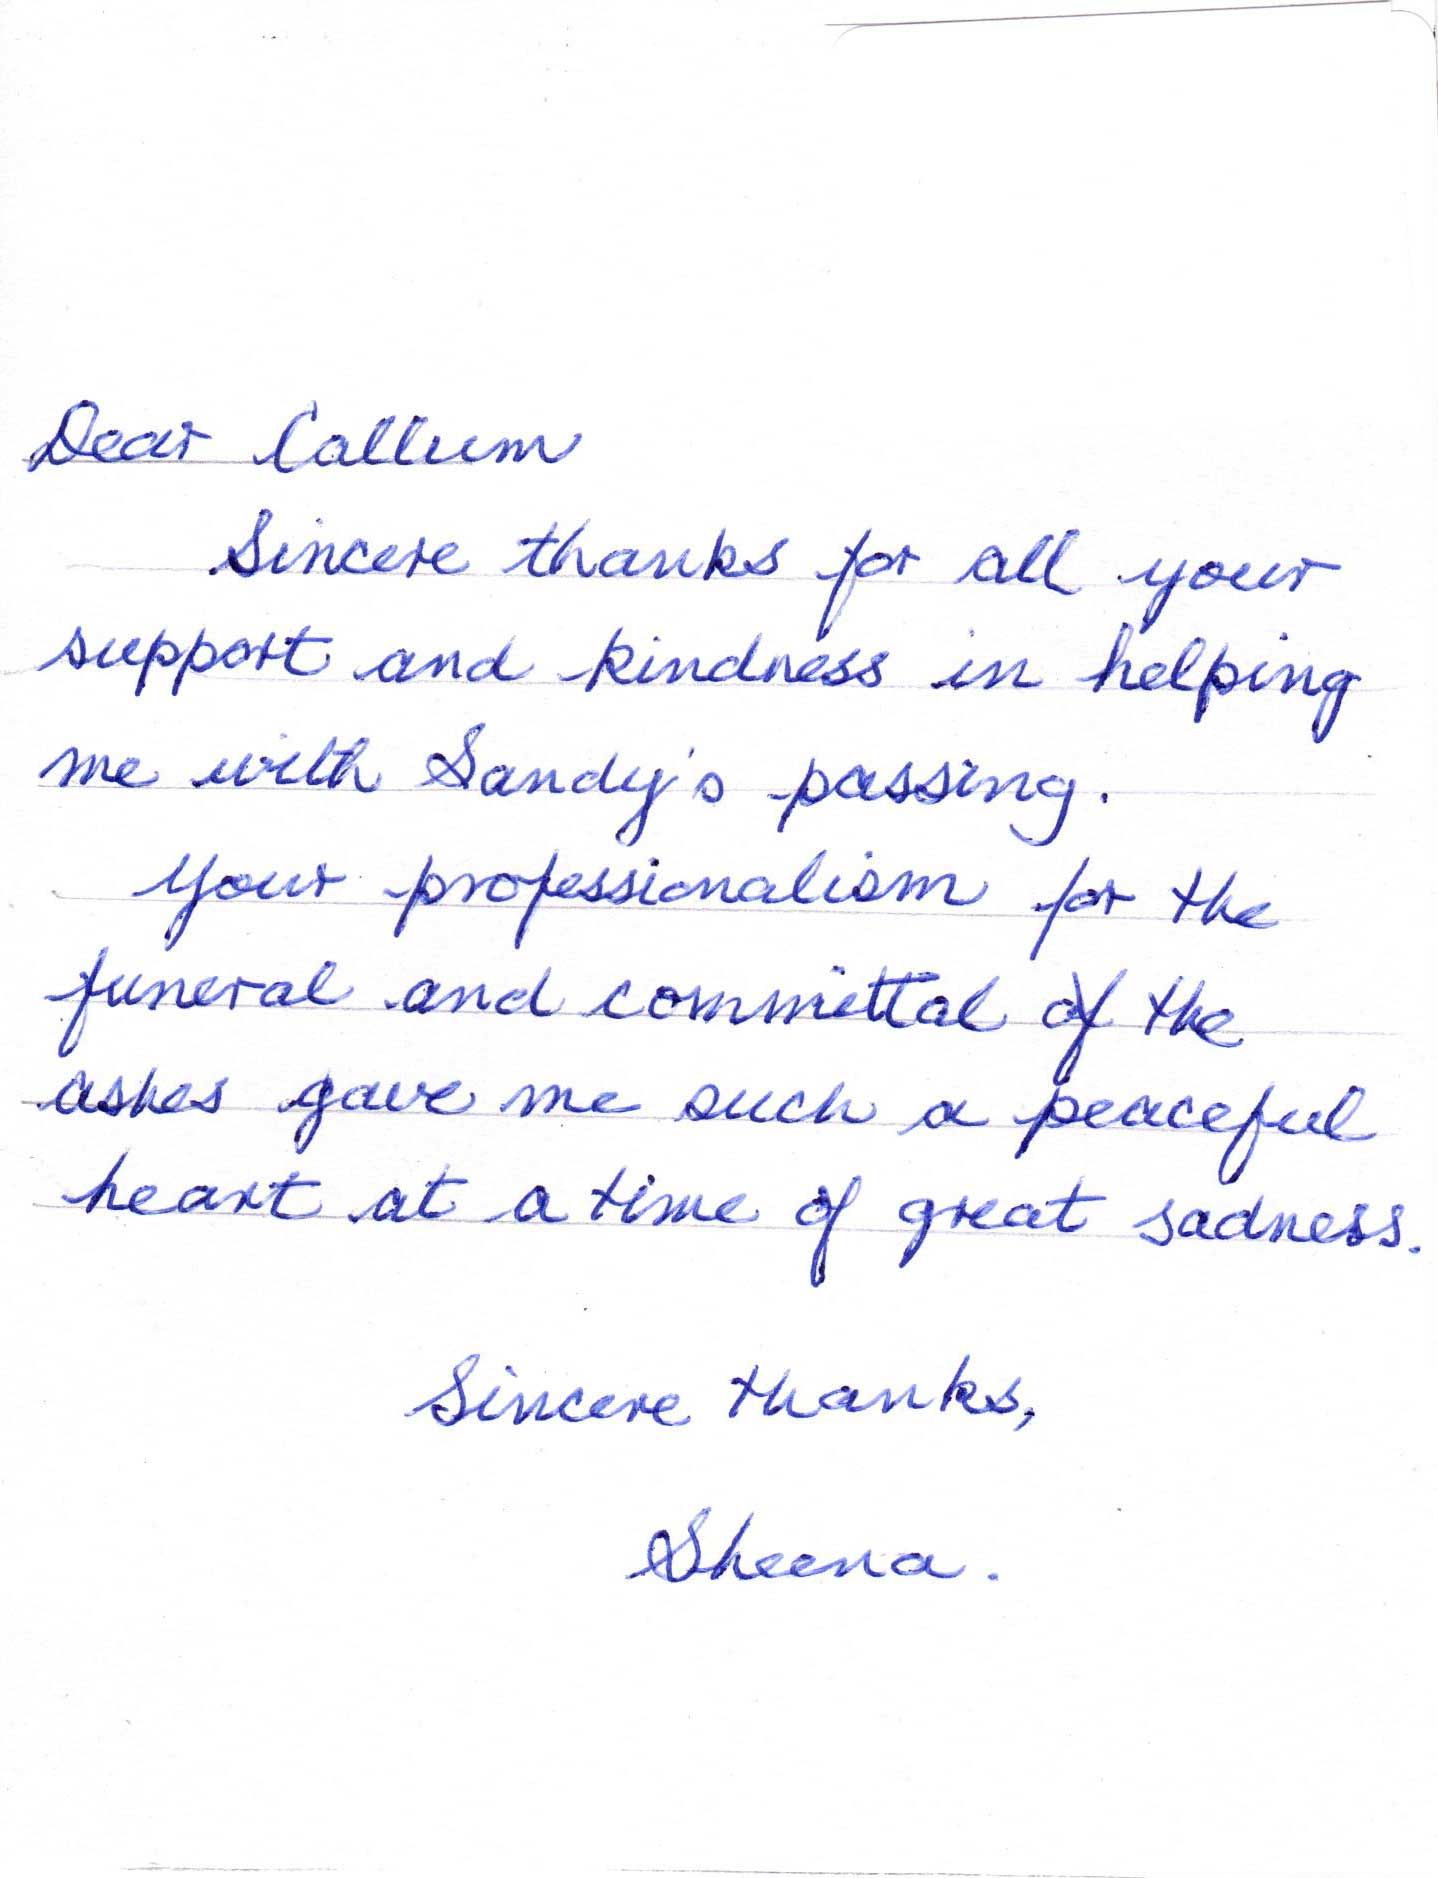 Dear Callum
Sincere thanks for all your
support and kindness in helping
me with Sandy's passing.
Your professionalism for the
funeral and committal of the
ashes gave me such a peaceful
heart at a time of great sadness.
Sincere thanks,
Sheena.